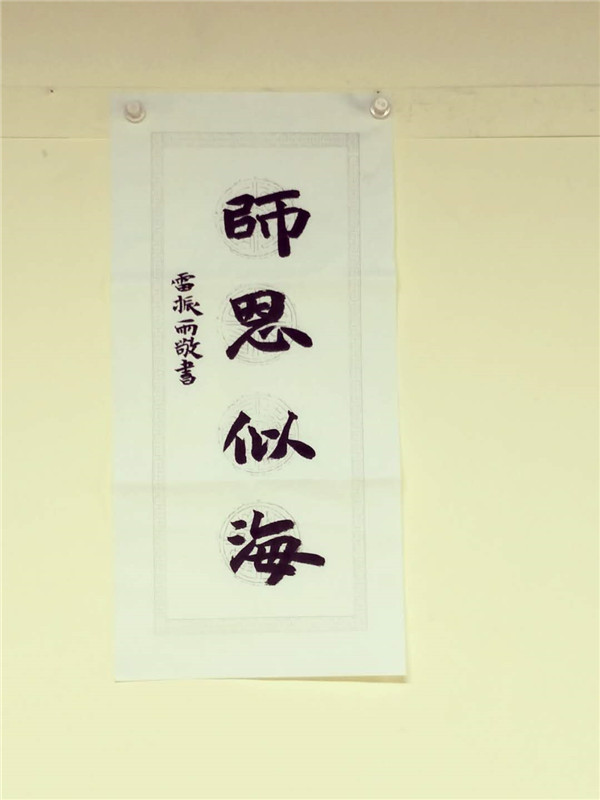 師恩似海
雷振雨敬書